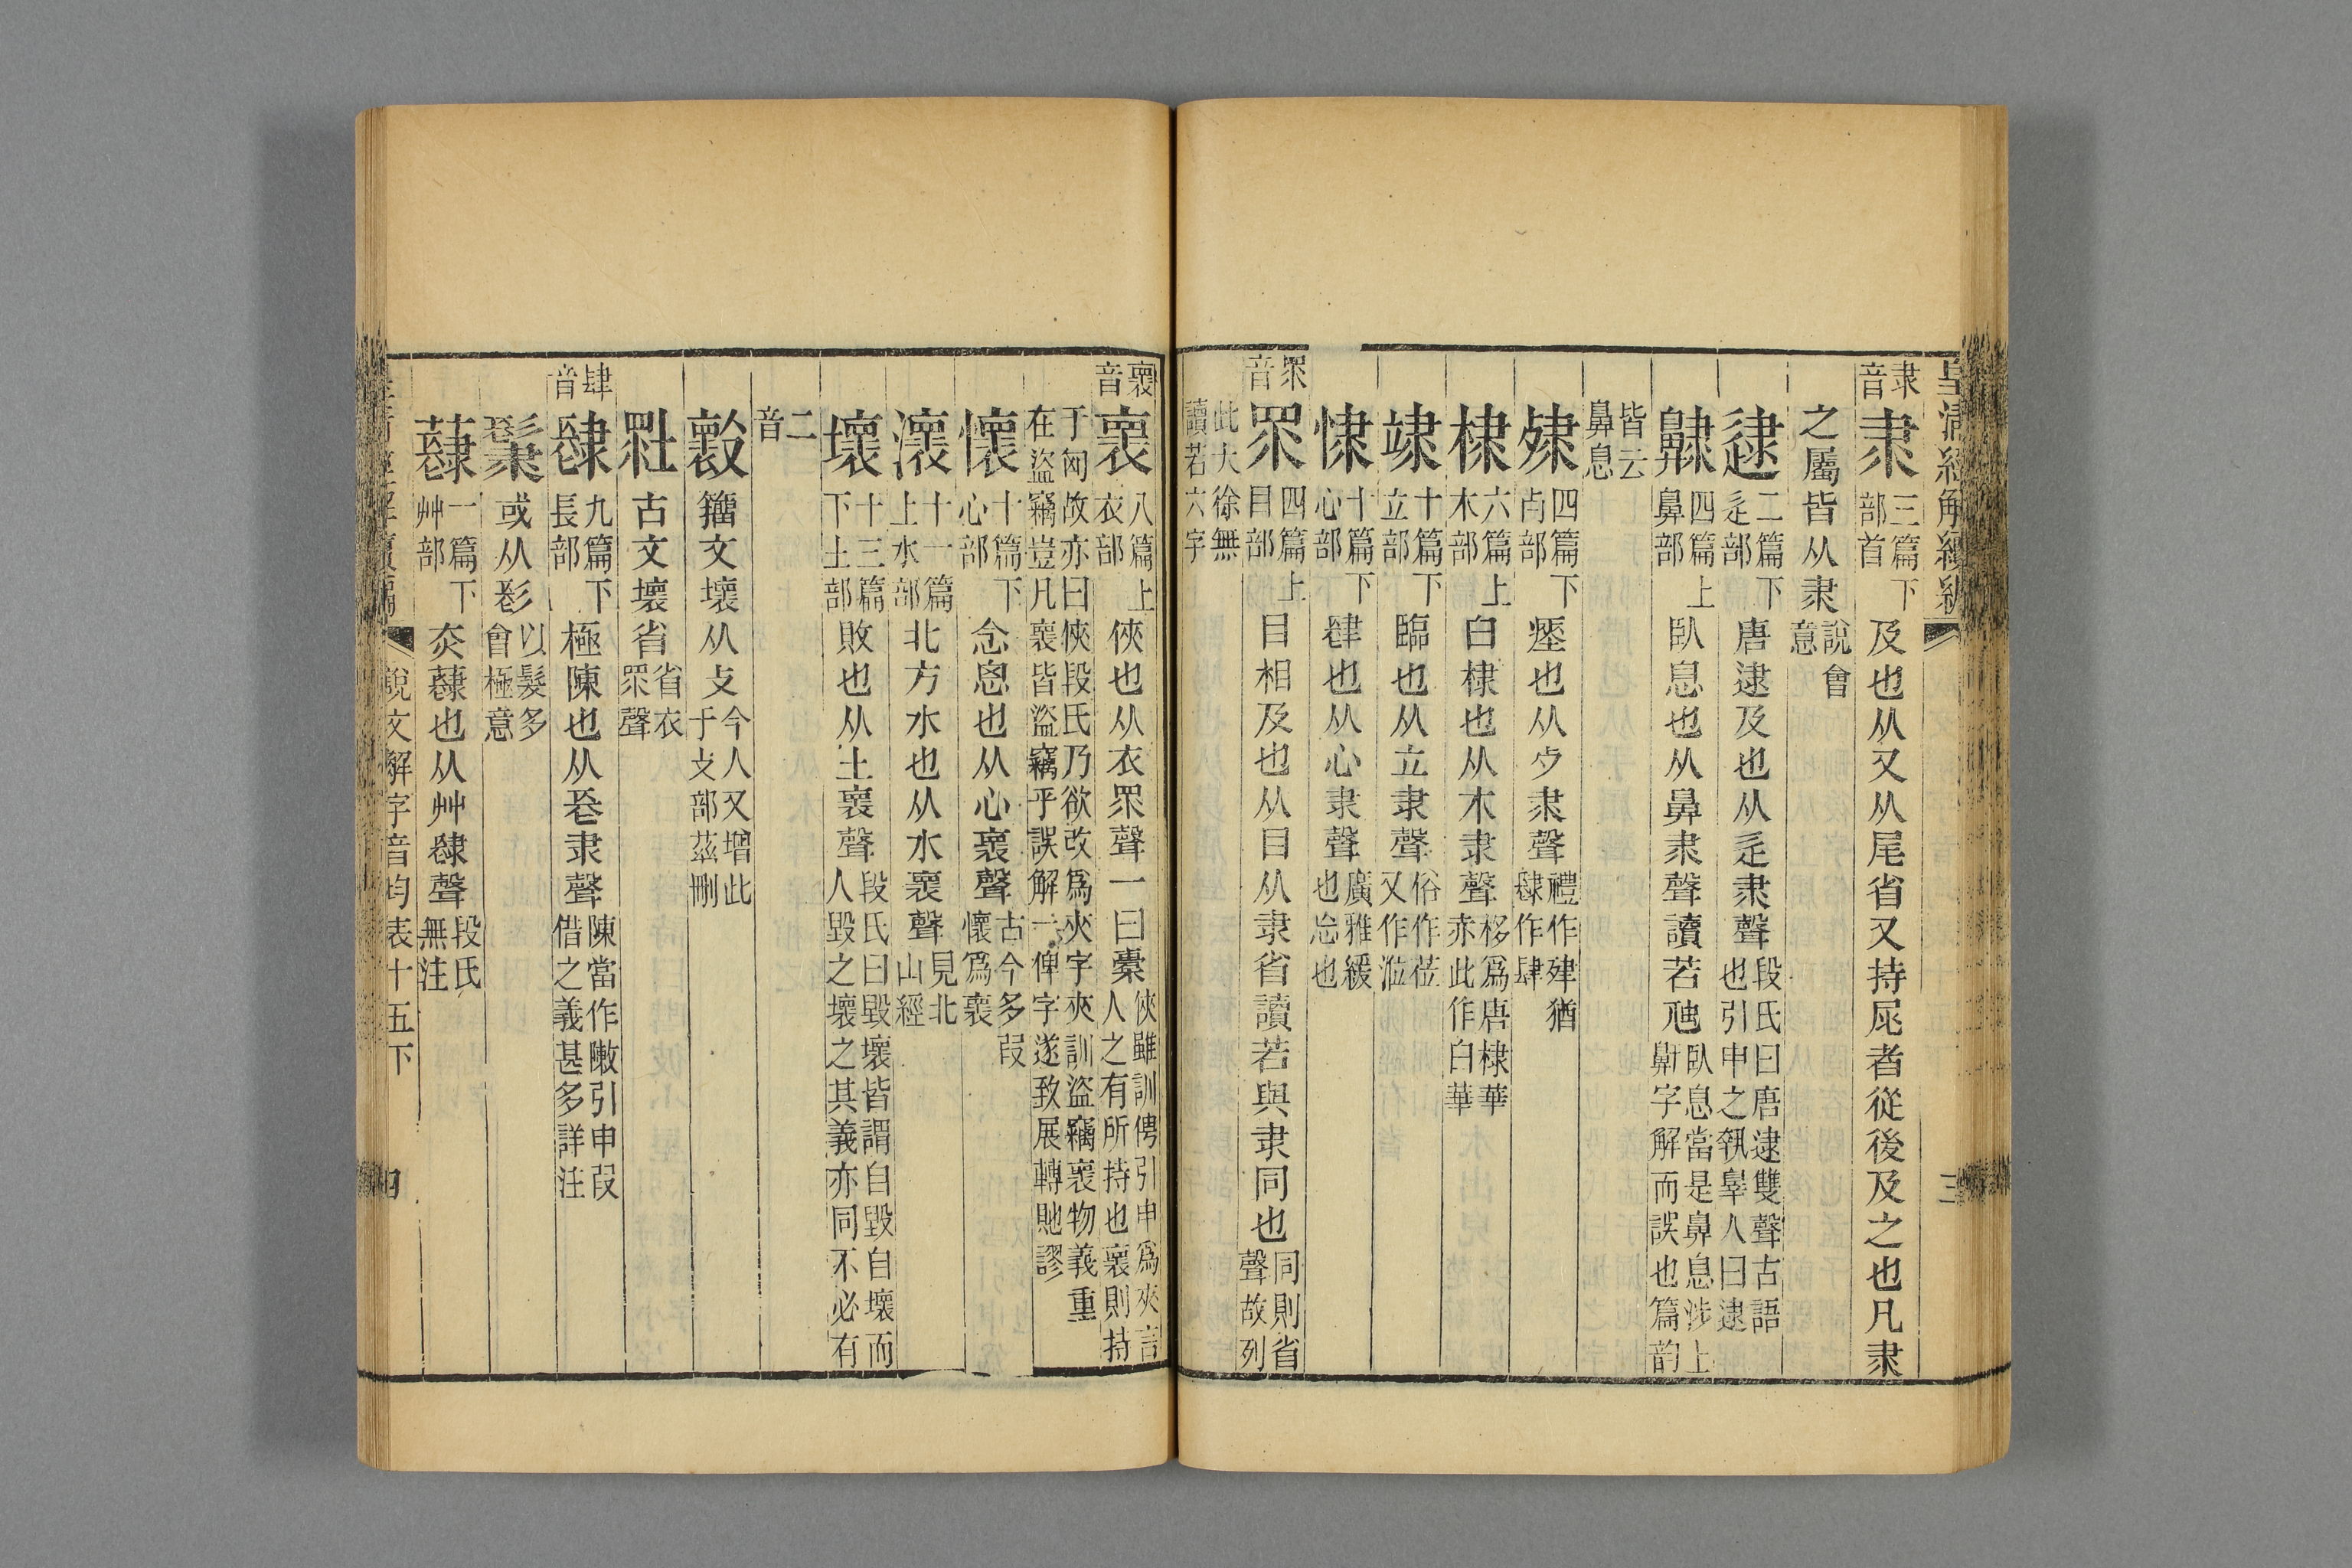 皇清經解續編
三
隶音
隶 三篇下部首 及也从又从尾省又持尾者從後及之也凡隶
之屬皆从隶 說會意
逮 二篇下辵部 唐逮及也从辵隶聲 段氏曰唐逮雙聲古語也引申之執辠人曰逮
鼻部 四篇上 臥息也从鼻隶聲讀若虺 臥息當是鼻息涉上字解而誤也篇韵
皆云鼻息
殔 四篇下歺部 瘞也从歺隶聲 禮作肂猶肆作肆
棣 六篇上木部 白棣也从木隶聲 移爲唐棣華赤此作白華
𥩼 十篇下立部 臨也从立隶聲 俗作莅又作涖
㣈 十篇下心部 肆也从心隶聲 廣雅緩也忘也
眔音
眔 四篇上目部 目相及也从目从隶省讀若與隶同也 同則省聲故列
此大徐無讀若六字
褱音
褱 八篇上衣部 俠也从衣眔聲一曰橐 俠雖訓俜引申爲夾言人之有所持也褱則持
于匈故亦曰俠段氏乃欲改爲夾字夾訓盜竊褱物義重在盜竊豈凡褱皆盜竊乎誤解一俜字遂致展轉貤謬
懷 十篇下心部 念恖也从心褱聲 古今多叚懷爲褱
瀤 十一篇上水部 北方水也从水褱聲 見北山經
壞 十三篇下土部 敗也从土褱聲 段氏曰毀壞皆謂自毀自壞而人毀之壞之其義亦同不必有
二音
𣀩 籒文壞从攴 今人又增此于攴部茲刪
𡊅 古文壞省 省衣眔聲
肆音
𨽸 九篇下長部 極陳也从镸隶聲 陳當作敶引申叚借之義甚多詳注
或从髟 以髮多會極意
一篇下艸部 也从艸聲 段氏無注
皇清經解續編
說文解字音均表十五下
四